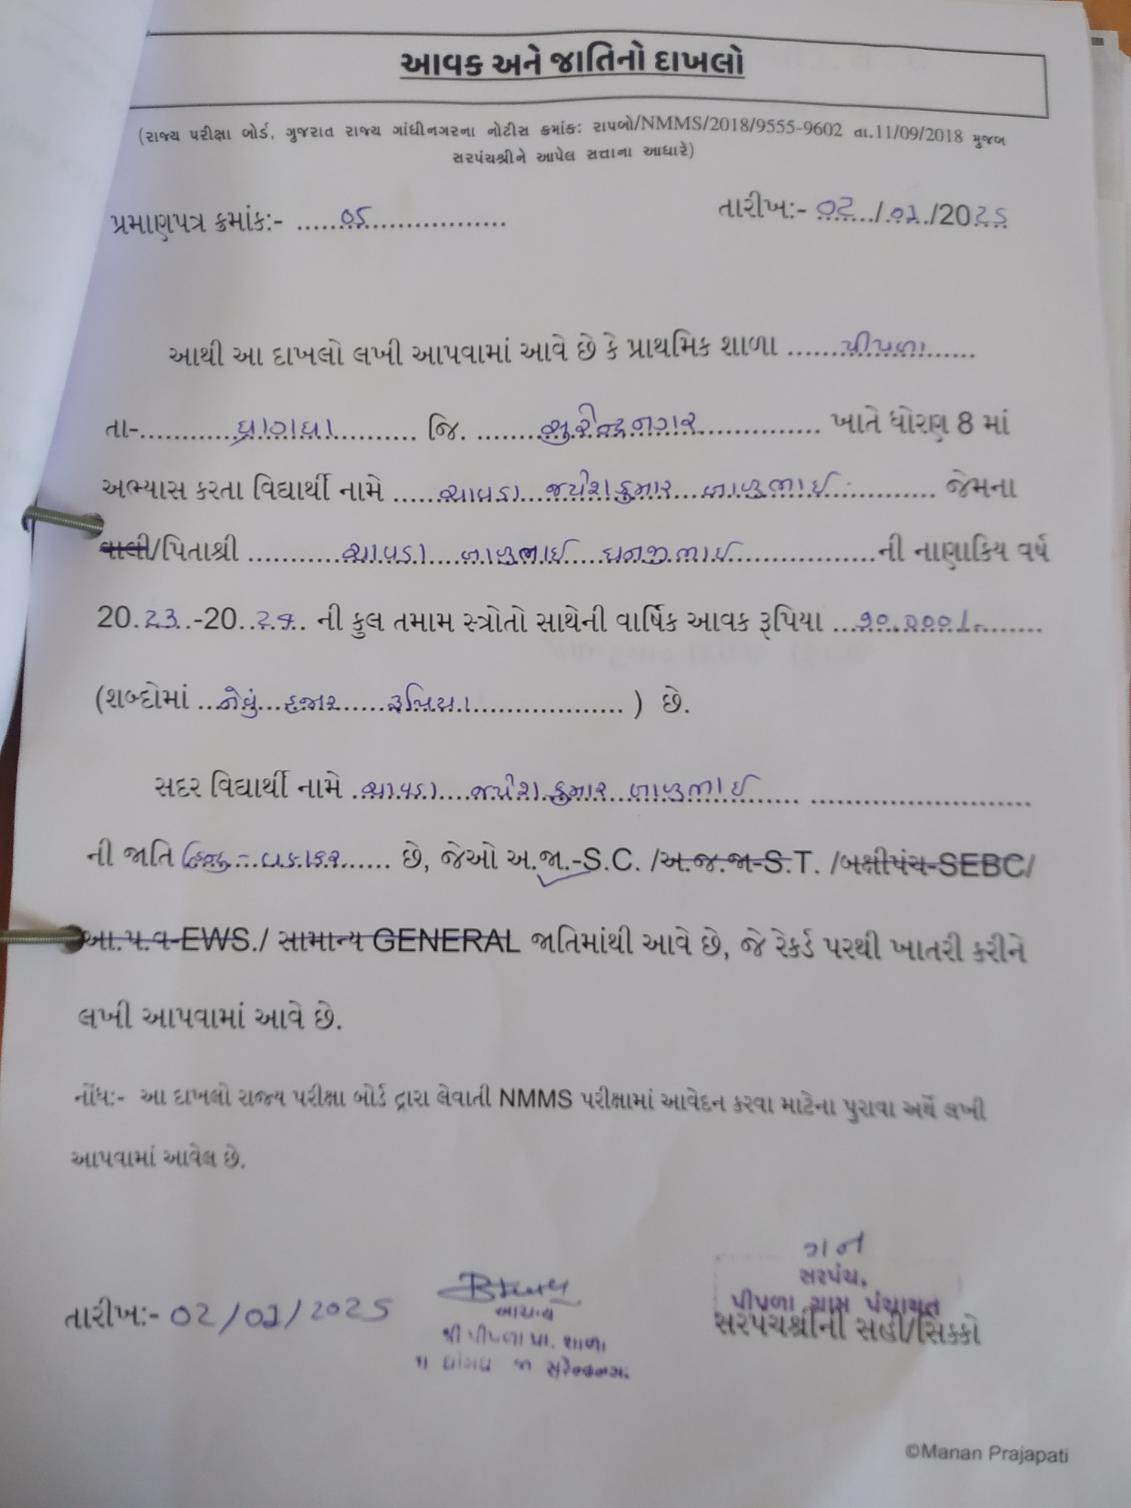 આવક અને જાતિનો દાખલો
(રાજ્ય પરીક્ષા બોર્ડ, ગુજરાત રાજ્ય ગાંધીનગરના નોટીસ ક્રમાંક: રાપબો/NMMS/2018/9555-9602 તા.11/09/2018 મુજબ
સરપંચશ્રીને આપેલ સત્તાના આધારે)
પ્રમાણપત્ર ક્રમાંક:- ....૦૬.................... તારીખ:- ૦૨/૦૧/2025
આથી આ દાખલો લખી આપવામાં આવે છે કે પ્રાથમિક શાળા ......પીપળા......
તા-...........ધ્રાંગધ્રા.......... જિ. .......સુરેન્દ્રનગર.............. ખાતે ધોરણ 8 માં
અભ્યાસ કરતા વિદ્યાર્થી નામે .....ચાવડા જયેશકુમાર બાબુભાઈ.......... જેમના
વાલી/પિતાશ્રી ..........ચાવડા બાબુભાઈ ધનજીભાઈ..............ની નાણાકિય વર્ષ
20.23.-20..24.. ની કુલ તમામ સ્ત્રોતો સાથેની વાર્ષિક આવક રૂપિયા ...૯૦.૦૦૦/-......
(શબ્દોમાં ..નેવું...હજાર.....રૂપિયા..................) છે.
સદર વિદ્યાર્થી નામે .ચાવડા....જયેશકુમાર બાબુભાઈ.... ........................
ની જાતિ હિન્દુ-વણકર...... છે, જેઓ અ.જા.-S.C. /અ.જ.જા-S.T. /બક્ષીપંચ-SEBC/
આ.પ.વ-EWS./ સામાન્ય GENERAL જાતિમાંથી આવે છે, જે રેકર્ડ પરથી ખાતરી કરીને
લખી આપવામાં આવે છે.
નોંધ:- આ દાખલો રાજ્ય પરીક્ષા બોર્ડ દ્રારા લેવાતી NMMS પરીક્ષામાં આવેદન કરવા માટેના પુરાવા અર્થે લખી
આપવામાં આવેલ છે.
સરપંચ,
પીપળા ગ્રામ પંચાયત
તારીખ:- 02/01/2025 આચાર્ય સરપંચશ્રીની સહી/સિક્કો
શ્રી પીપળા પ્રા. શાળા
તા ધ્રાંગધ્રા જી સુરેન્દ્રનગર
©Manan Prajapati